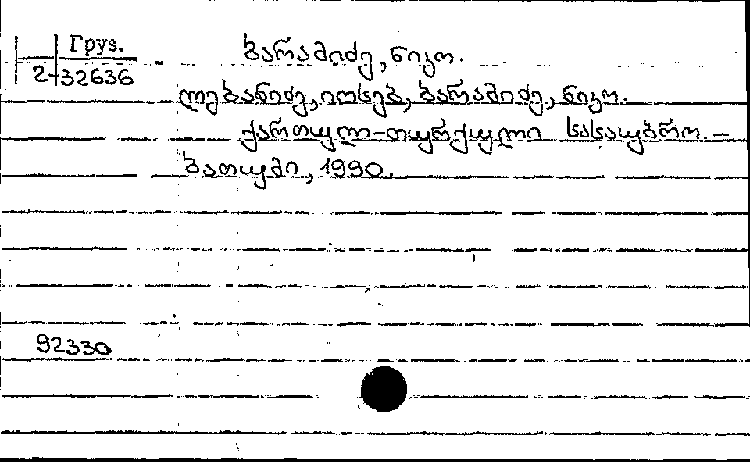 Груз.
2-32636
ბარამიძე, ნიკო.
ლებანიძე, იოსებ, ბარამიძე, ნიკო.
ქართულ-თურქული სასაუბრო. –
ბათუმი, 1990.
92330